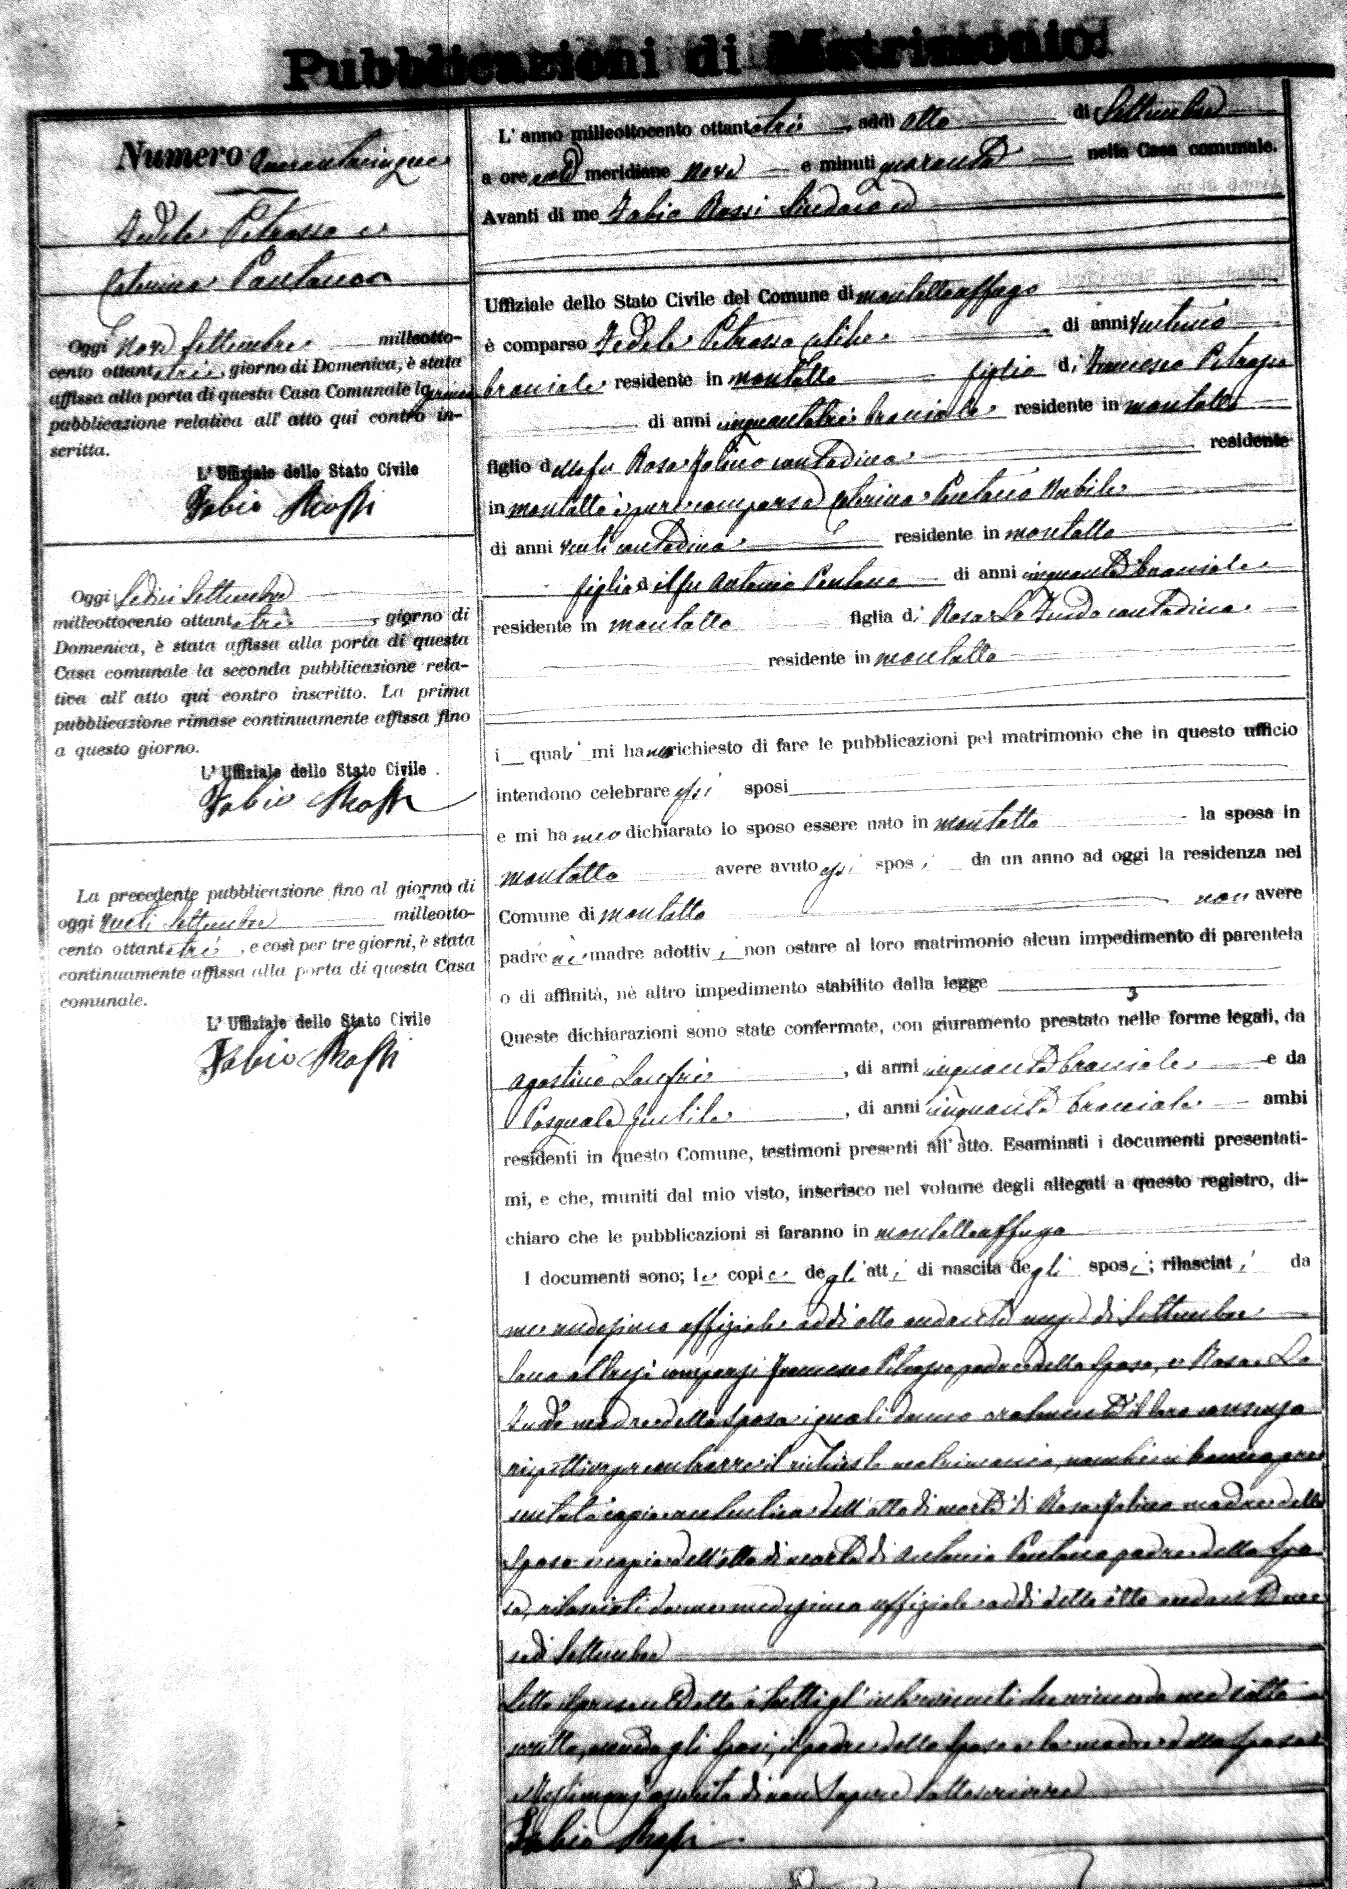 Pubblicazioni di Matrimonio.
Numero Quarantacinque
Fedele Petrassa e
Caterina Pantano
Oggi Nove Settembre milleotto-
cento ottantatrè, giorno di Domenica, è stata
affissa alla porta di questa Casa Comunale la prima
pubblicazione relativa all' atto qui contro in-
scritta.
L' Uffiziale dello Stato Civile
Fabio Rossi
Oggi Sedici Settembre
milleottocento ottantatrè, giorno di
Domenica, è stata affissa alla porta di questa
Casa comunale la seconda pubblicazione rela-
tiva all' atto qui contro inscritto. La prima
pubblicazione rimase continuamente affissa fino
a questo giorno.
L' Uffiziale dello Stato Civile.
Fabio Rossi
La precedente pubblicazione fino al giorno di
oggi Venti Settembre milleotto-
cento ottantatrè, e così per tre giorni, è stata
continuamente affissa alla porta di questa Casa
comunale.
L' Uffiziale dello Stato Civile
Fabio Rossi
L' anno milleottocento ottantatrè, addi otto di Settembre
a ore anti meridiane nove e minuti quaranta nella Casa comunale.
Avanti di me Fabio Rossi Sindaco ed
Uffiziale dello Stato Civile del Comune di montaltouffugo
è comparso Fedele Petrassa celibe, di anni ventuno
bracciale residente in montalto figlio di Francesco Petrassa
di anni cinquantatrè bracciale residente in montalto
figlio della fu Rosa contadina residente
in montalto è pure comparsa Caterina Pantano Nubile
di anni venti contadina residente in montalto
figlia del fu Antonio Pantano di anni cinquanta bracciale
residente in montalto figlia di Rosa Lo contadina
residente in montalto
i quali mi hanno richiesto di fare le pubblicazioni pel matrimonio che in questo ufficio
intendono celebrare essi sposi
e mi hanno dichiarato lo sposo essere nato in montalto la sposa in
montalto avere avuto essi sposi da un anno ad oggi la residenza nel
Comune di montalto non avere
padre nè madre adottivi, non ostare al loro matrimonio alcun impedimento di parentela
o di affinità, nè altro impedimento stabilito dalla legge
3
Queste dichiarazioni sono state confermate, con giuramento prestato nelle forme legali, da
Agostino, di anni cinquanta bracciale e da
Pasquale, di anni cinquanta bracciale ambi
residenti in questo Comune, testimoni presenti all' atto. Esaminati i documenti presentati-
mi, e che, muniti dal mio visto, inserisco nel volume degli allegati a questo registro, di-
chiaro che le pubblicazioni si faranno in montaltouffugo
I documenti sono; le copie degli atti di nascita degli sposi; rilasciati da
me medesimo uffiziale addi otto andante mese di Settembre
Sono altresì comparsi Francesco Petrassa padre dello Sposo, e Rosa Lo
madre della Sposa i quali danno oralmente il loro consenso
rispettivo per contrarre il richiesto matrimonio, nonchè mi hanno pre
sentato copia autentica dell'atto di morte di Rosa madre dello
Sposo e copia dell'atto di morte di Antonio Pantano padre della Spo
sa, rilasciati da me medesimo uffiziale addi detto otto andante me
se di Settembre
Letto il presente atto a tutti gl'intervenuti da me sotto
scritto, avendo gli Sposi, il padre dello Sposo e la madre della Sposa
e testimoni asserito di non Sapere Sottoscrivere
Fabio Rossi